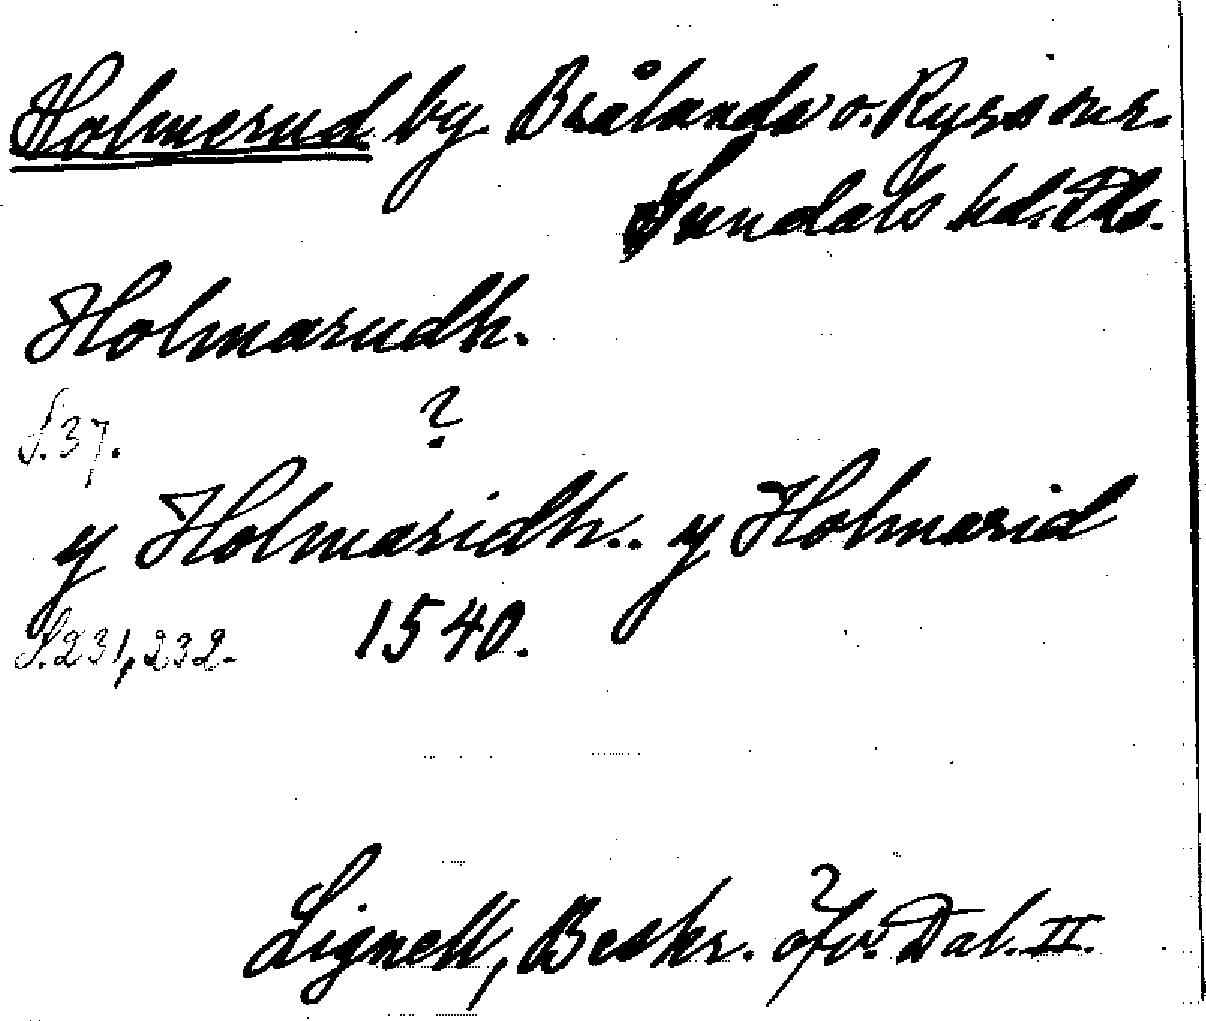 Holmerud by Brålanda o. Ryrs snr.
Sundals hd. Dls.
Holmarudh.
S. 37. ?
y Holmaridh.. y Holmarid
S. 231, 232. 1540.
Lignell, Beskr. öfv. Dal. II.